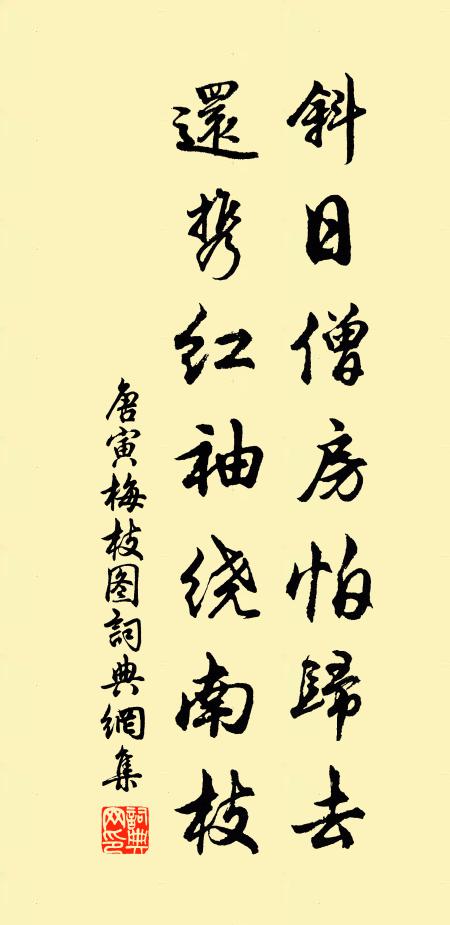 斜日僧房怕歸去
還携红袖绕南枝
唐寅梅枝图詞典網集
詞典網印